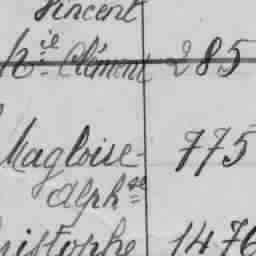 Vincent
Nil Clément 285
Magloire 775
Alphse
ristophe 1476